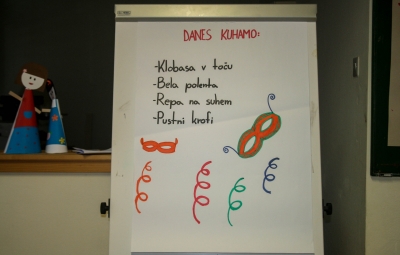 DANES KUHAMO:
-Klobasa v toču
-Bela polenta
-Repa na suhem
-Pustni krofi